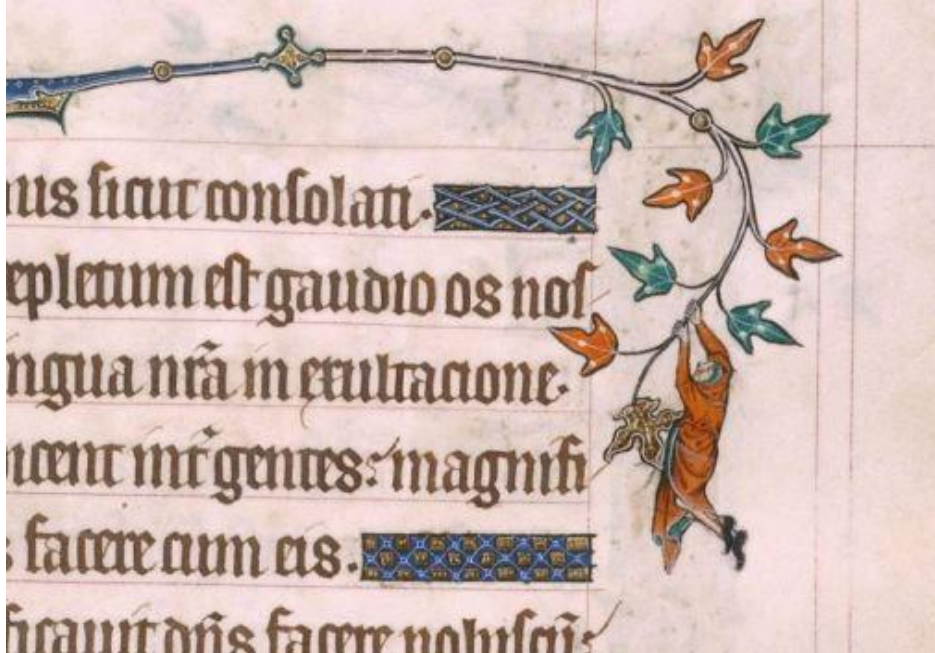 us sicut consolati.
epletum est gaudio os nos
ngua nr̄a in exultacione.
icent int̄ gentes: magnifi
s facere cum eis.
ficauit dn̄s facere nobiscū: